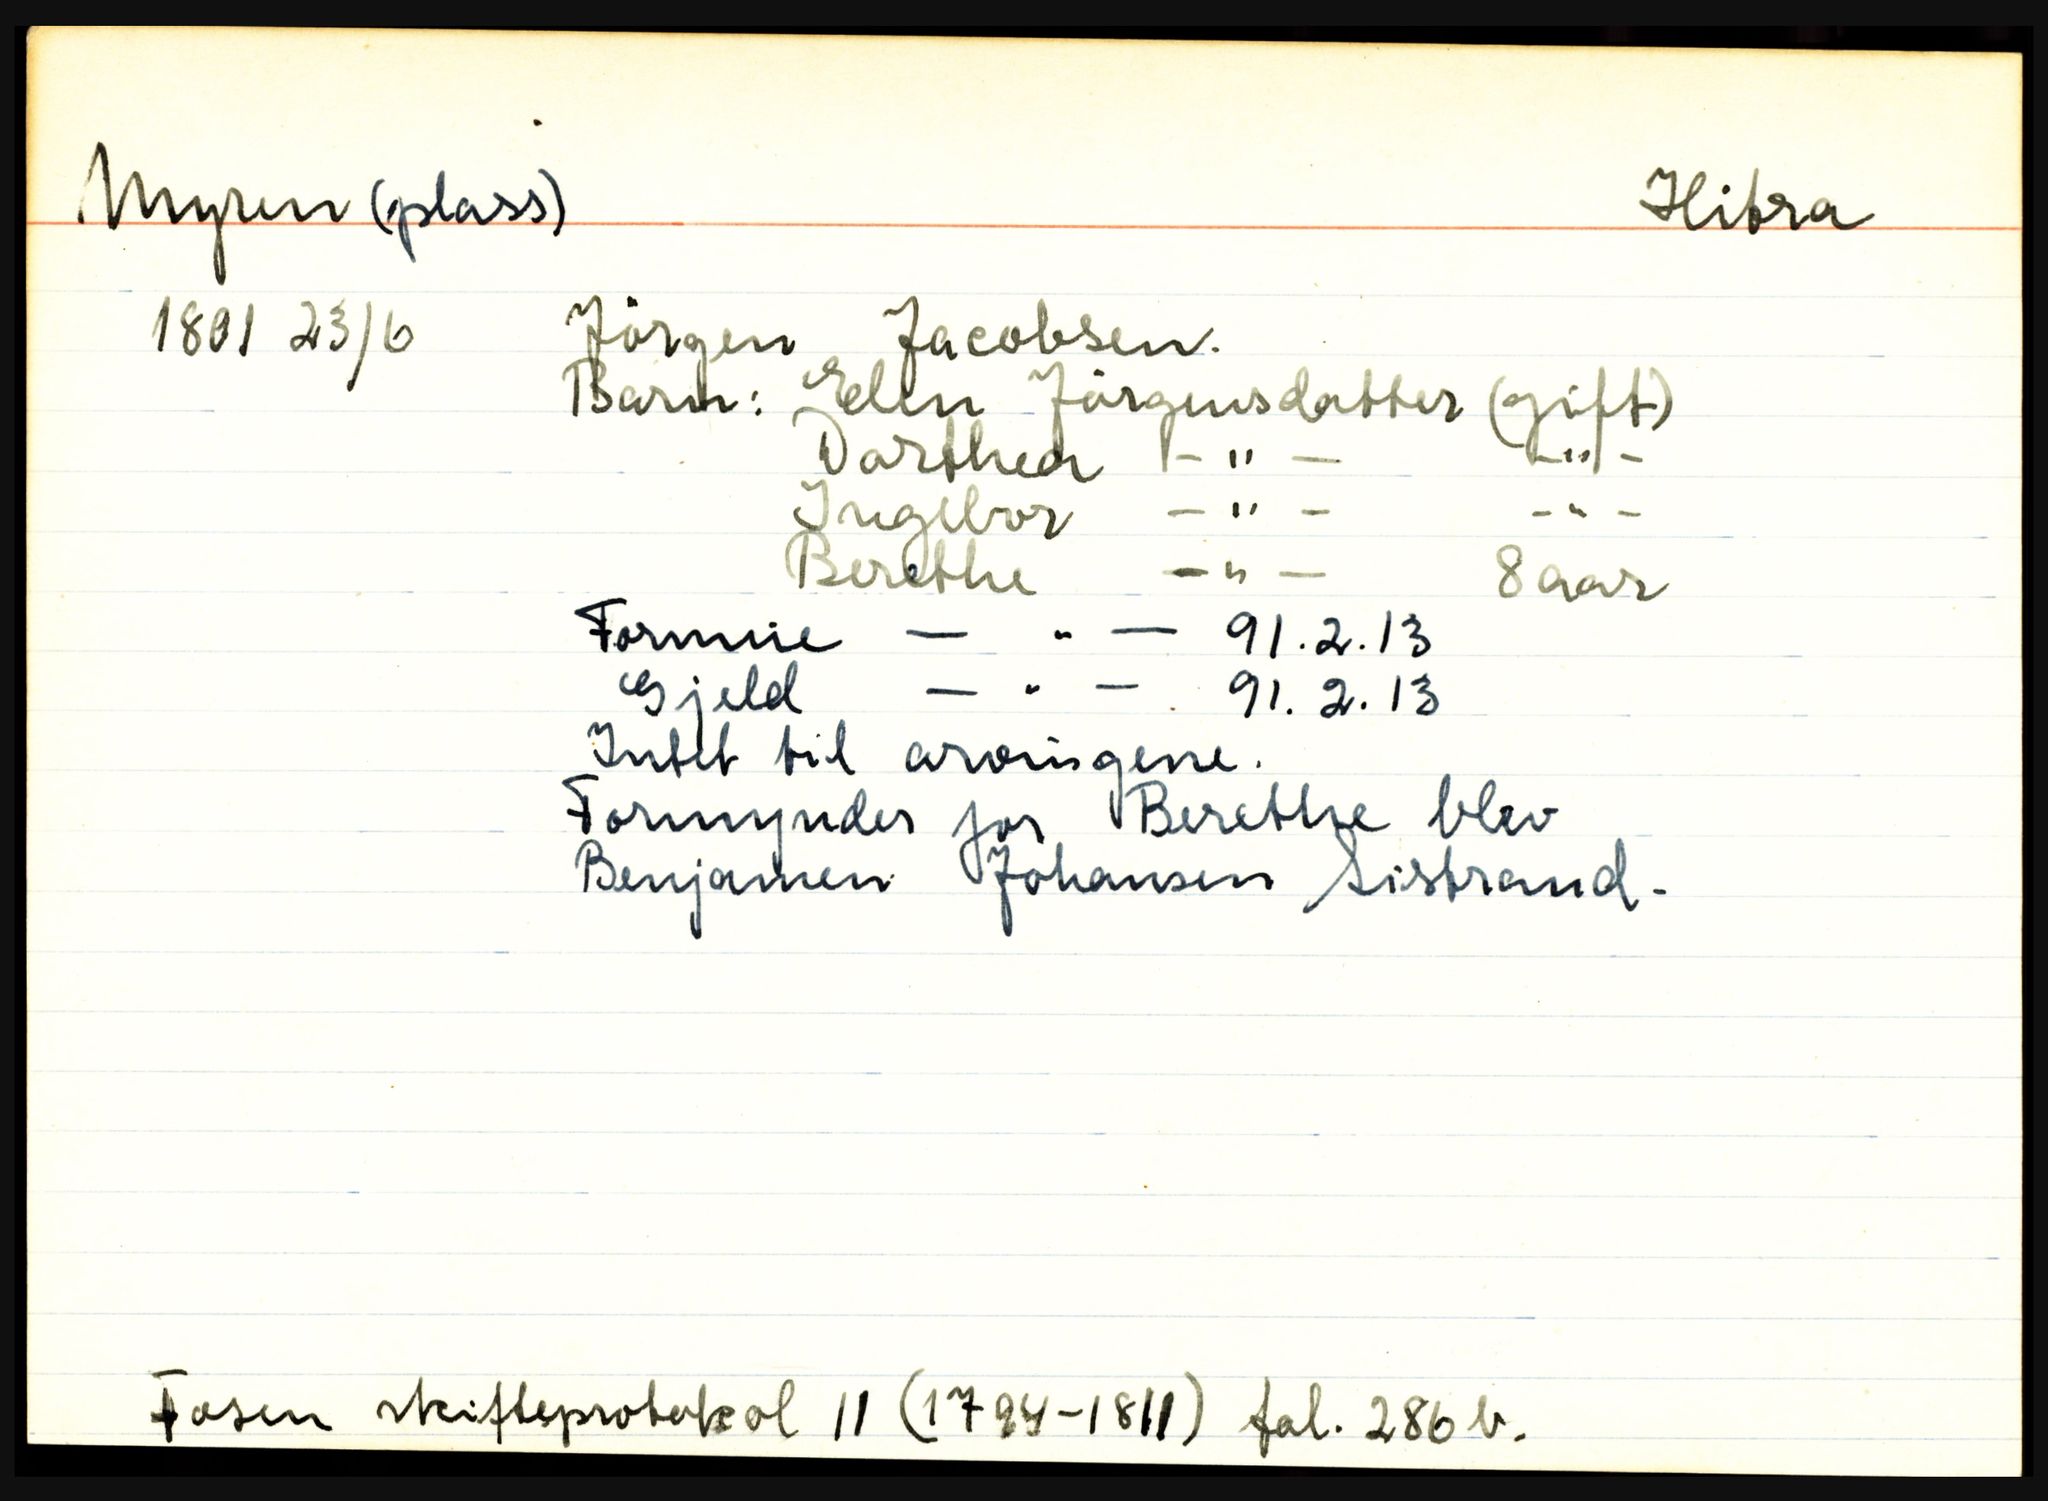 Myren (plass) Hitra
1801 23/6 Jörgen Jacobsen.
Barn: Elen Jörgensdatter (gift)
Dorthea - " - - " -
Ingebor - " - - " -
Berethe - " - 8 aar
Formue — " — 91.2.13
Gjeld — " — 91.2.13
Intet til arvingene.
Formynder for Berethe blev
Benjamen Johansen Sistrand.
Fosen skifteprotokol 11 (1794-1811) fol. 286 b.